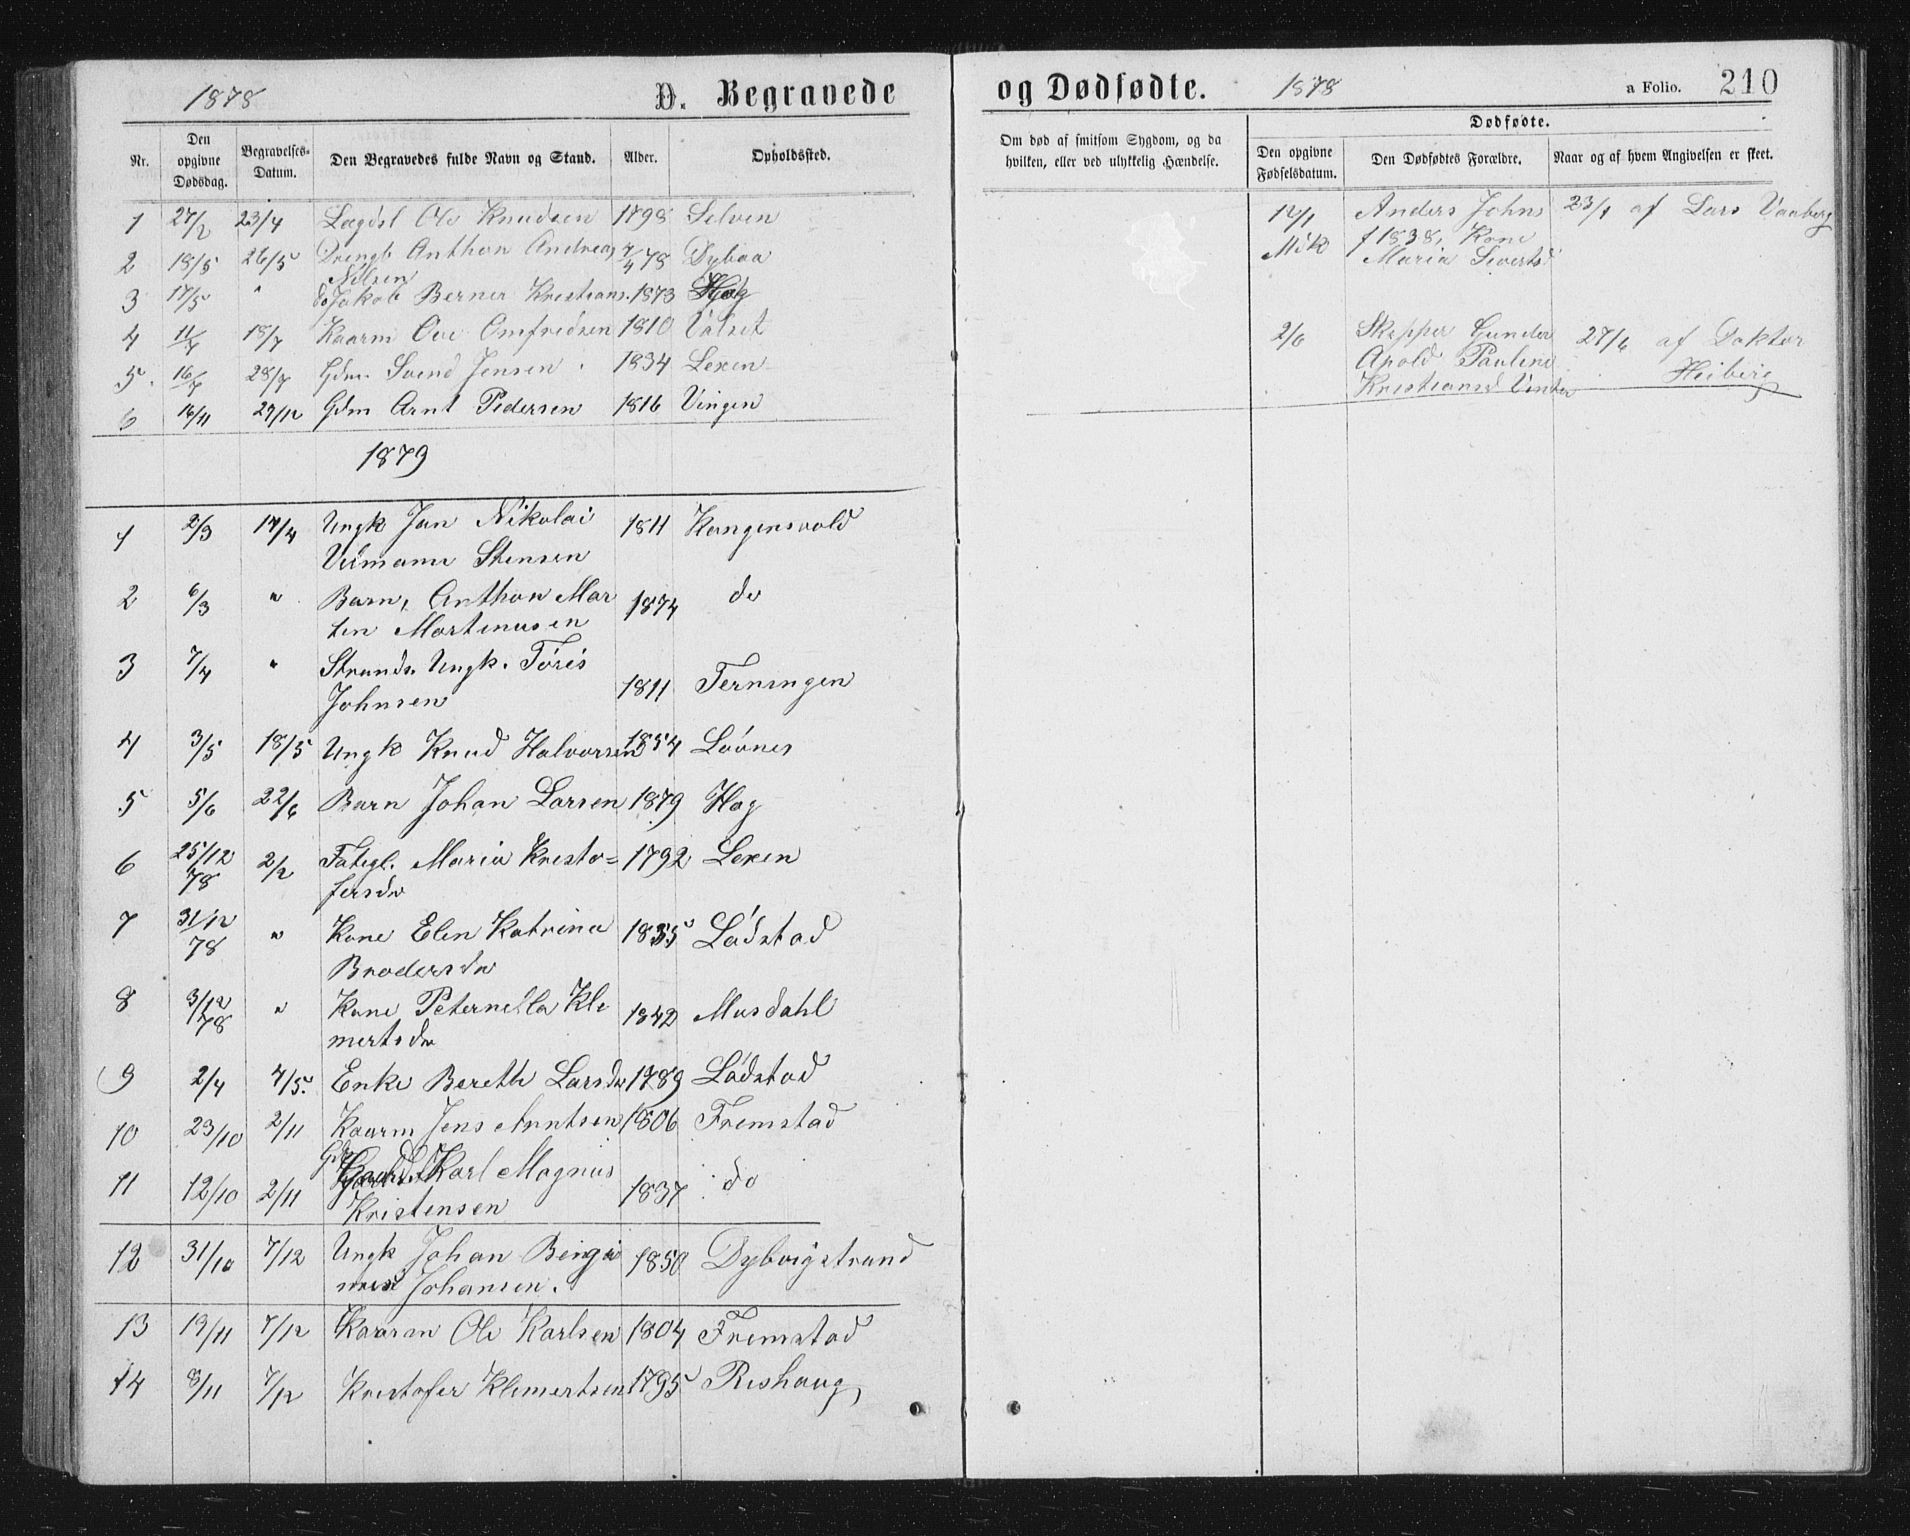 1878 D. Begravede
Nr. Den opgivne Dødsdag. Begravelses-Datum. Den Begravedes fulde Navn og Stand. Alder. Opholdssted.
1 27/2 23/4 Lægdsl Ole Knudsen 1798 Selven
2 18/5 26/5 Drengb Anthon Andreas 7/4 78 Dybaa
Nilsen
3 17/5 " do Jakob Berner Kristians. 1873 Hog
4 11/7 18/7 Kaarm Ove Omfredsen 1810 Valset
5. 16/7 28/7 Gdm. Svend Jensen. 1834 Lexen
6 16/11 27/12 Gdm Arnt Pedersen 1816 Vingen
1879
1 2/3 17/4 Ungk Jan Nikolai 1811 Kongensvold
Stensen
2 6/3 " Barn, Anthon Mar 1874 do
tin Martinusen
3 7/4 " Strands. Ungk. Töris
Johnsen 1811 Terningen
4 3/5 18/5 Ungk Knud Halvorsen 1854 Lövnes
5 5/6 22/6 Barn Johan Larsen 1879 Hog
6 25/12 78 2/2 Fatigl. Maria Kristo= 1792 Lexen
fersdr
7 31/12 78 " Kone Elen Katrina 1835 Lödstad
Brodersdr
8 3/12 78 " Kone Peternella Kle 1842 Musdahl
mertsdr
9 2/4 4/5. Enke Bereth Larsdr 1789 Lödstad
10 23/10 2/11 Kaarm Jens Arntsen 1806 Fremstad
11 12/10 2/11 Karl Magnus
Kristensen 1837 do
12 31/10 7/12 Ungk Johan Benja 1850 Dybvigstrand
min Johansen.
13 19/11 7/12 Kaarm Ole Karlsen 1804 Fremstad
14 8/11 7/12 Kristofer Klemertsen 1795 Rishaug
og Dødfødte. 1878 a Folio. 210
Om død af smitsom Sygdom, og da hvilken, eller ved ulykkelig Hændelse.
Dødfødte.
Den opgivne Fødselsdatum. Den Dødfødtes Forældre. Naar og af hvem Angivelsen er skeet.
12/1 Anders Johns 23/1 af Lars Vaaberg
Mdk f 1838, Kone
Maria Sivertsd
2/6 Skipper Gunder 27/6 af Doktor
Apold Pauline Heiberg
Kristiansd Vinter